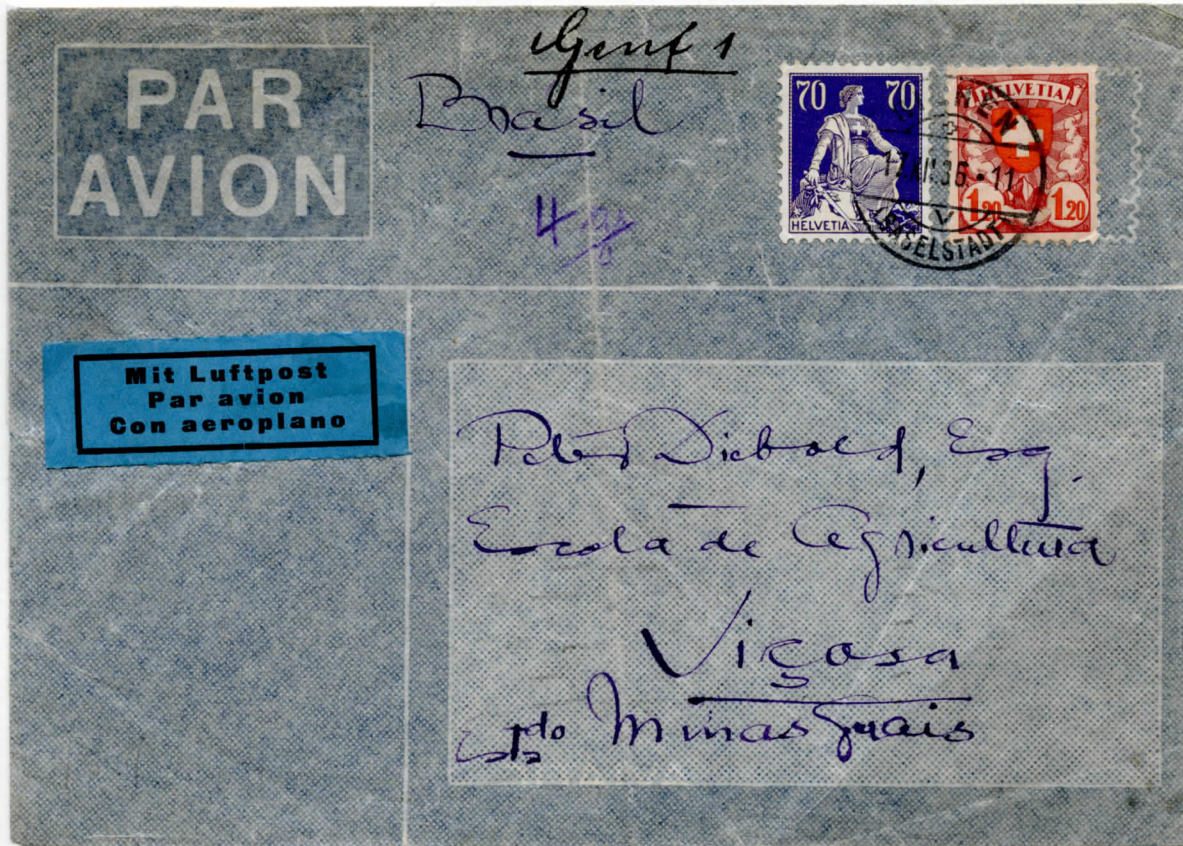 Genf 1
PAR
AVION
Brasil
70 70
HELVETIA
HELVETIA
1.20 1.20
(BASELSTADT)
Mit Luftpost
Par avion
Con aeroplano
Peter Diebold, Esq.
Escola de Agricultura
Viçosa
Estdo Minas Gerais